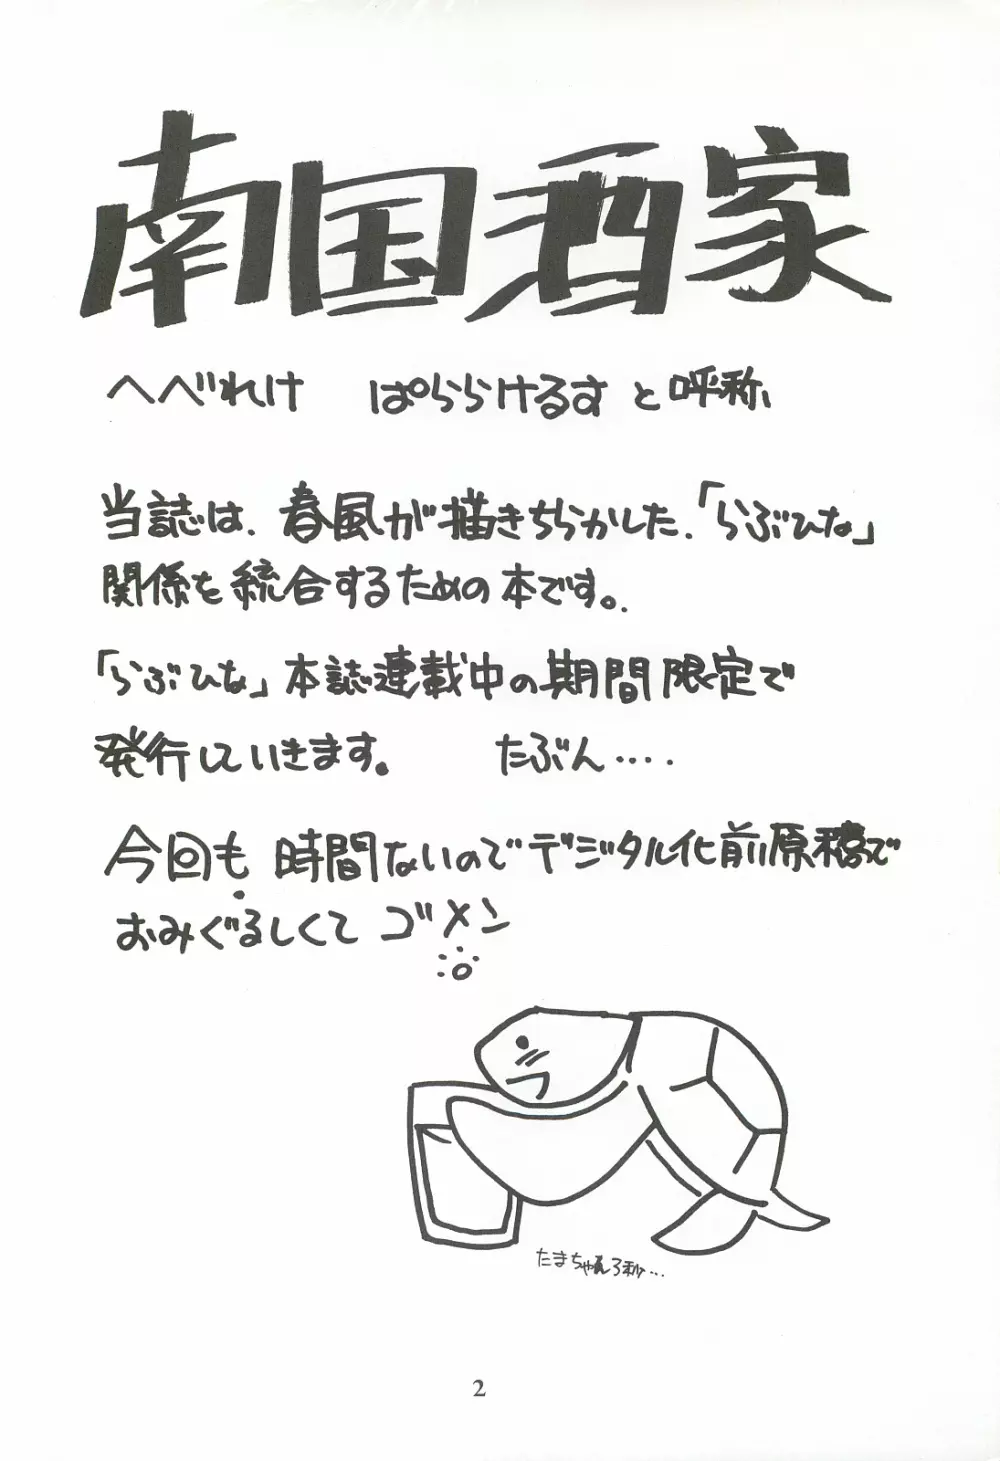 南国酒家
へべれけ ぱららけるす と呼称、
当誌は、春風が描きちらかした、「らぶひな」
関係を統合するための本です。
「らぶひな」本誌連載中の期間限定で
発行していきます。 たぶん‥‥
今回も、時間ないのでデジタル化前原稿で
おみぐるしくて ゴメン
たまちゃん3秒…
2